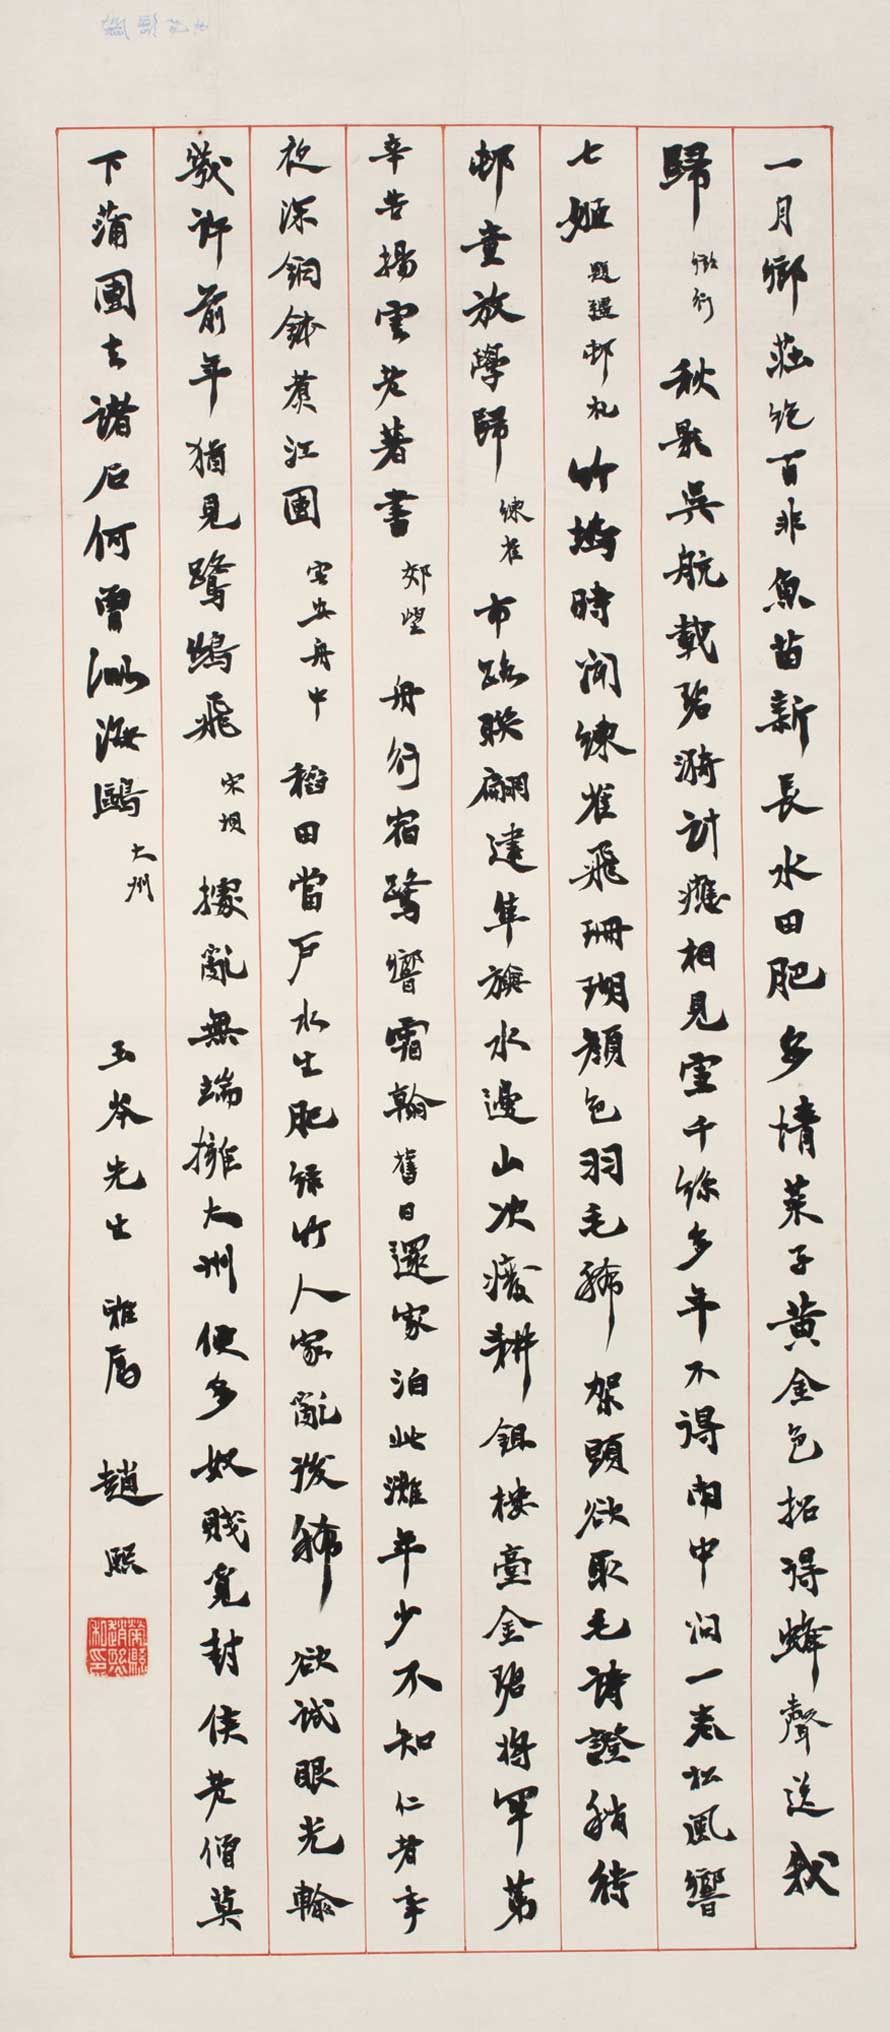 一月鄉莊飽百非魚苗新長水田肥多情菜子黃金色招得蜂聲送我
歸 秋影吳航載碧漪計應相見雪千絲多年不得閩中問一卷松風響
七姬 題還邨札 竹塢時聞練雀飛珊瑚顏色羽毛稀架頭欲取毛詩證稍待
邨童放學歸 練雀 布路聯翩建隼旗水邊山次廢耕鉏樓臺金碧將軍第
辛苦揚雲老著書 郊望 舟行宿鷺響霜翰舊日還家泊此灘年少不知仁者事
夜深銅鉢煮江團 舟中 稻田當戶水生肥綠竹人家亂後稀欲試眼光輸
幾許前年猶見鷺鷀飛 宋坝 據亂無端擁大州便多奴賤覓封侯老僧莫
下蒲團去諸石何曾海鷗 大州 玉岑先生 雅屬 趙熙